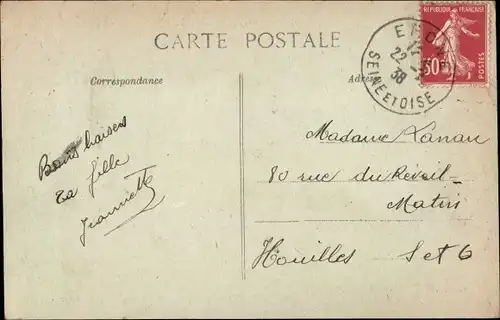 CARTE POSTALE
Correspondance
Adresse
REPUBLIQUE FRANÇAISE
POSTES
22
38
SEINE ET OISE
Bons baisers
ta fille
Jeannette
Madame Lanau
80 rue du Réveil-
Matin
Houilles S et O